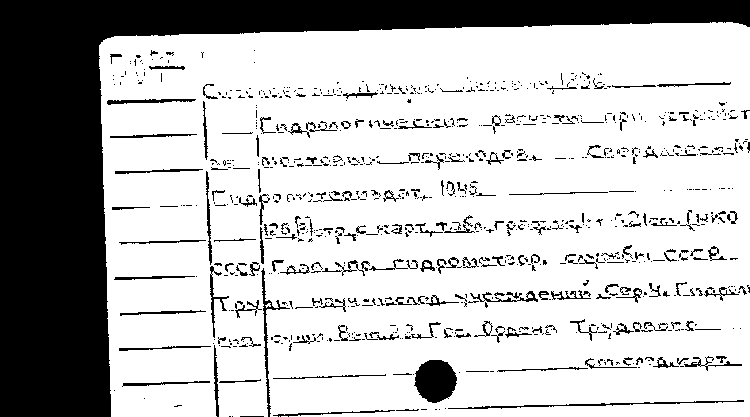 1896
Гидрологические расчеты при устройст
ве мостовых переходов. Свердловск-М
Гидрометеоиздат, 1946.
126,[3]стр, с карт, табл, график, 21см. (НКО
СССР, Глав. упр. гидрометеор. службы СССР.
Труды науч-исслед. учреждений. Сер.4. Гидроло
гия суши. Вып.22. Гос. Ордена Трудового
см.след.карт.